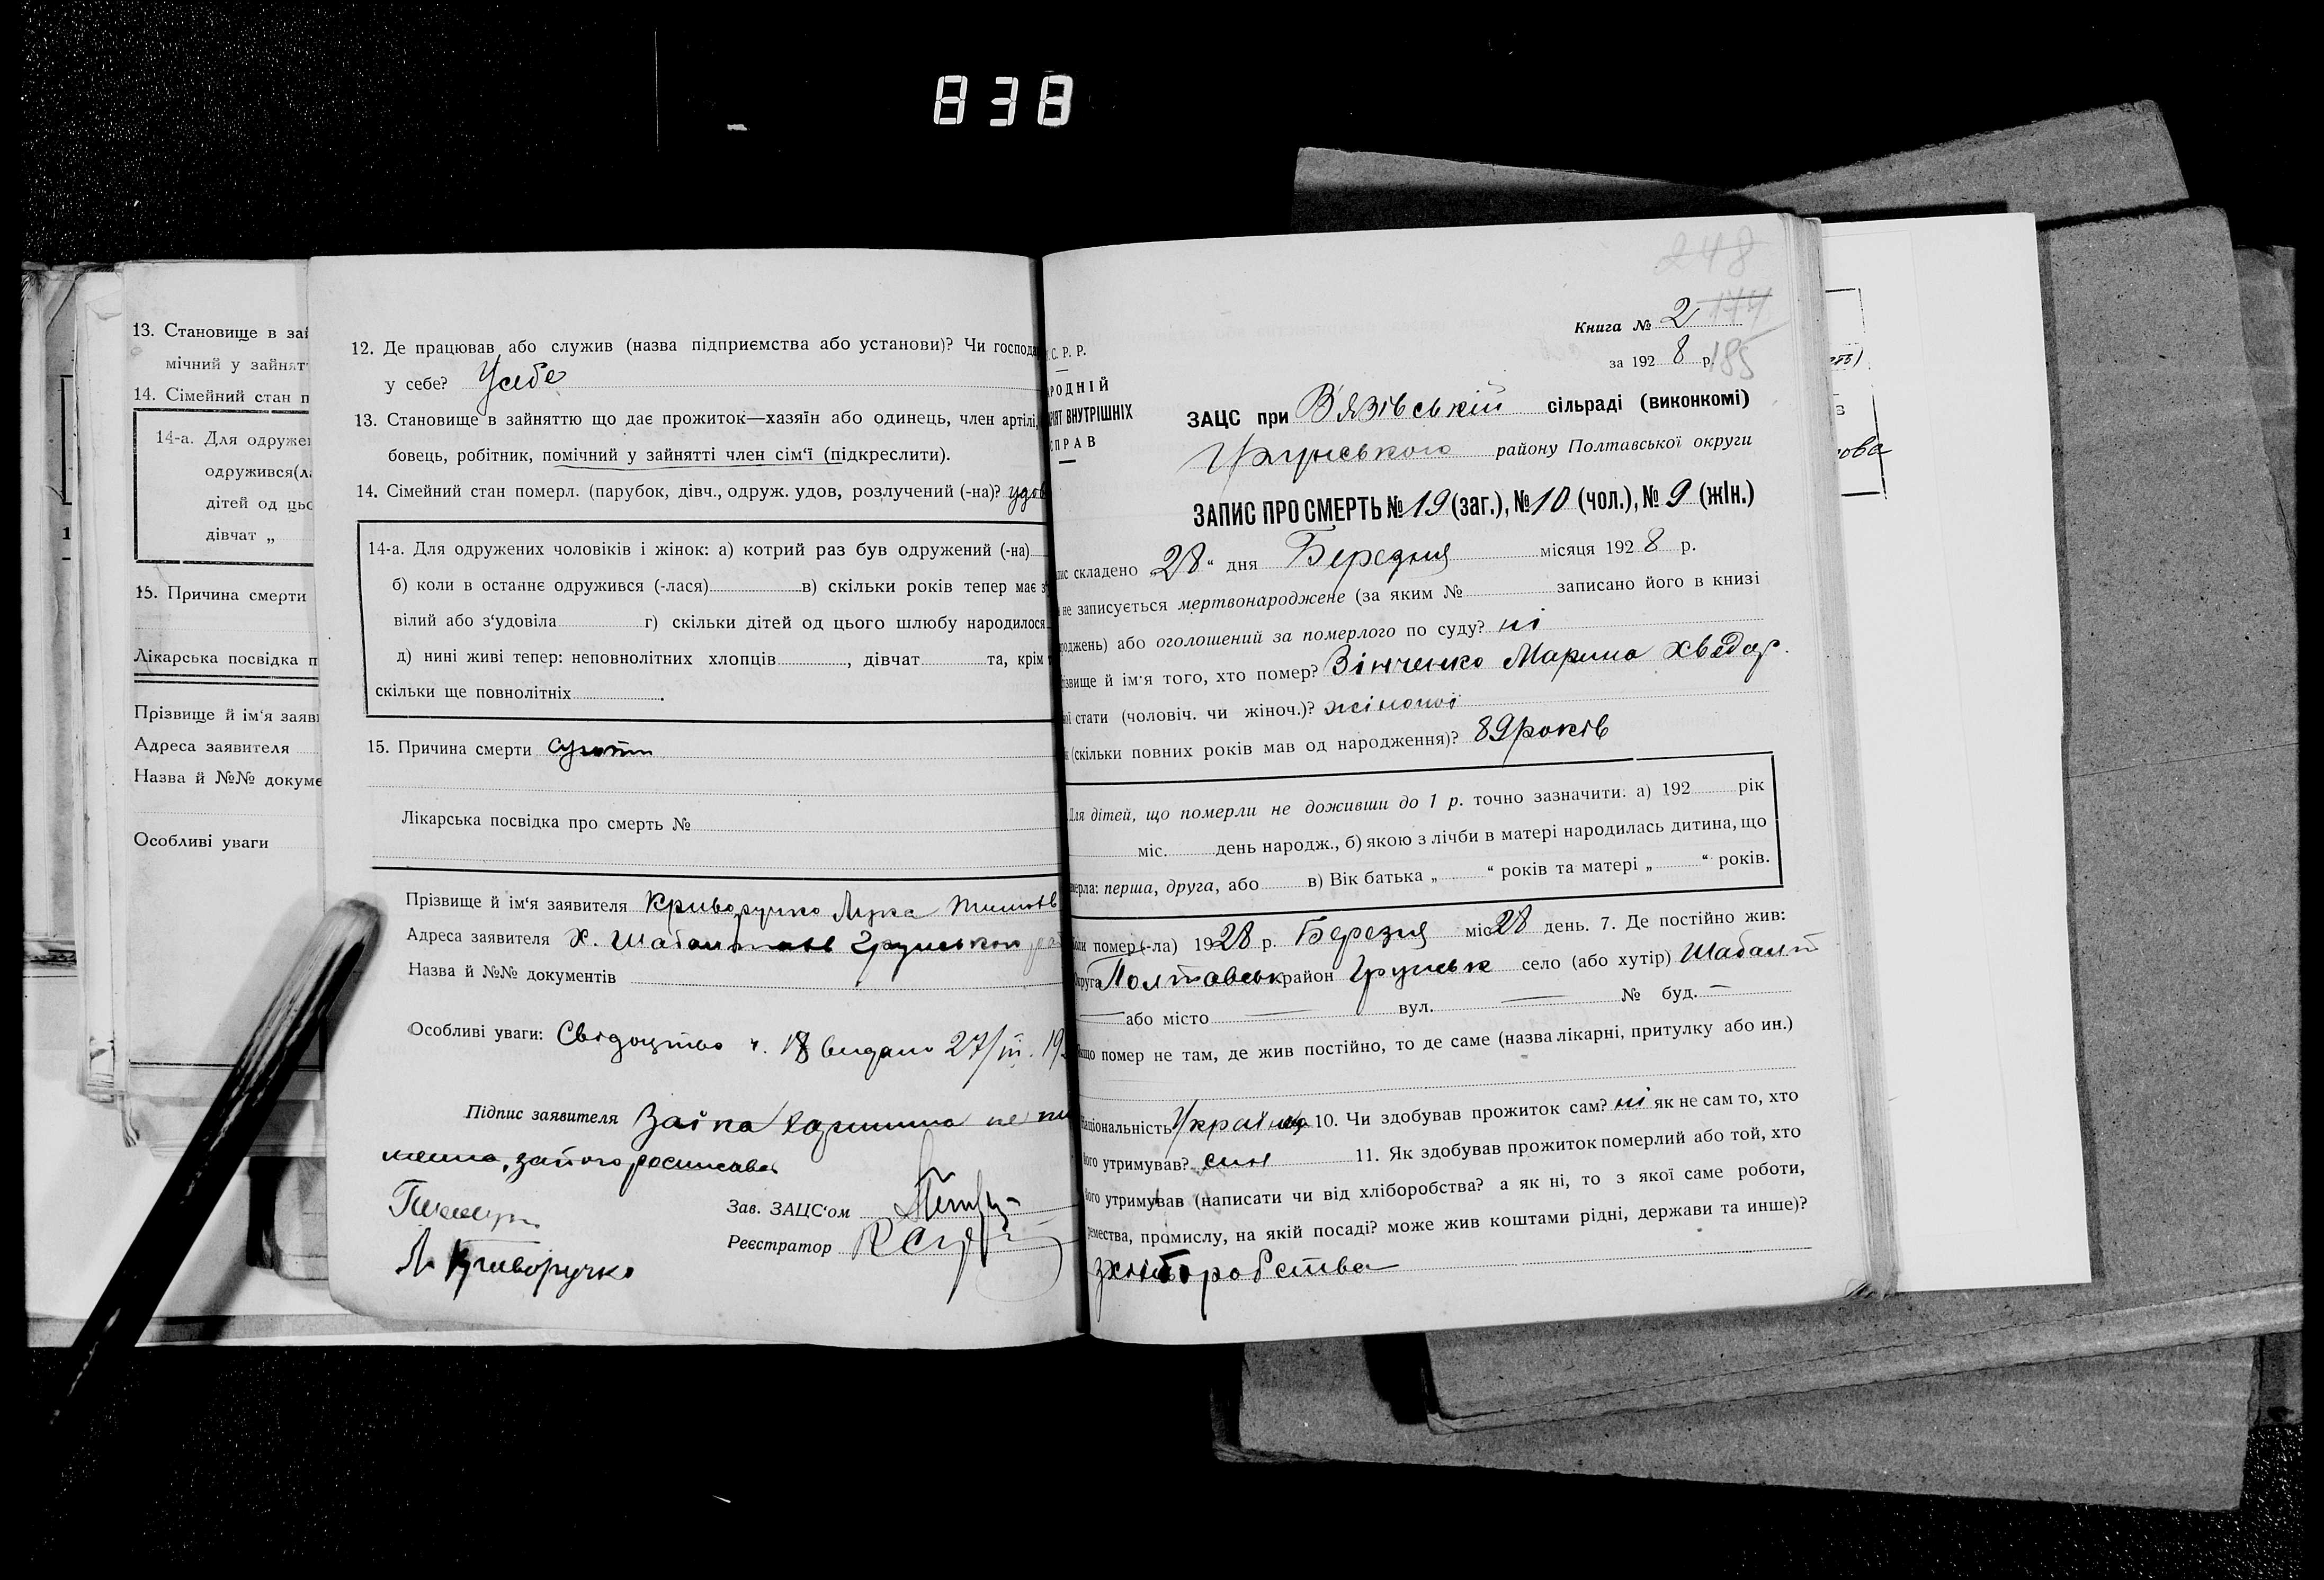 838
13. Становище в зай
мічний у зайнят
14. Сімейний стан п
14-а. Для одружен
одружився(ла
дітей од цьо
дівчат „
15. Причина смерти
Лікарська посвідка п
Прізвище й ім‘я заяв
Адреса заявителя
Назва й №№ докуме
Особливі уваги
12. Де працював або служив (назва підприємства або установи)? Чи господа
у себе? У себе
13. Становище в зайняттю що дає прожиток—хазяїн або одинець, член артілі,
бовець, робітник, помічний у зайнятті член сім‘ї (підкреслити).
14. Сімейний стан померл. (парубок, дівч., одруж. удов, розлучений (-на)? удов
14-а. Для одружених чоловіків і жінок: а) котрий раз був одружений (-на)
б) коли в останнє одружився (-лася) в) скільки років тепер має з
вілий або з‘удовіла г) скільки дітей од цього шлюбу народилося
д) нині живі тепер: неповнолітних хлопців , дівчат та, крім
скільки ще повнолітніх .
15. Причина смерти
Лікарська посвідка про смерть №
Прізвище й ім‘я заявителя Криворучко Лука
Адреса заявителя Х. Грунськой
Назва й №№ документів
Особливі уваги: Свідоцтво ч. 18 видано 27/III. 19
Підпис заявителя
, за його росписався
Зав. ЗАЦС‘ом
Реєстратор
Л. Криворучко
248
Книга № 2 174
за 192 8 р. 185
С. Р. Р.
РОДНІЙ
РІЯТ ВНУТРІШНІХ
СПРАВ
ЗАЦС при В'язівській сільраді (виконкомі)
Грунського району Полтавської округи
ЗАПИС ПРО СМЕРТЬ № 19 (заг.), № 10 (чол.), № 9 (жін.)
пис складено „28“ дня Березня місяця 192 8 р.
не записується мертвонароджене (за яким № записано його в книзі
роджень) або оголошений за померлого по суду? ні
ізвище й ім‘я того, хто помер? Зінченко Марина Хведор.
ої стати (чоловіч. чи жіноч.)? жіночої
(скільки повних років мав од народження)? 89 років
Для дітей, що померли не доживши до 1 р. точно зазначити: а) 192 рік
міс. день народж., б) якою з лічби в матері народилась дитина, що
мерла: перша, друга, або в) Вік батька „ “ років та матері „ “ років.
Коли помер(-ла) 1928 р. Березня міс 28 день. 7. Де постійно жив:
округа Полтавськ район Грунськ село (або хутір) Шабант
або місто — вул. — № буд. —
якщо помер не там, де жив постійно, то де саме (назва лікарні, притулку або ин.)
Національність Україн. 10. Чи здобував прожиток сам? ні як не сам то, хто
його утримував? син 11. Як здобував прожиток померлий або той, хто
його утримував (написати чи від хліборобства? а як ні, то з якої саме роботи,
ремества, промислу, на якій посаді? може жив коштами рідні, держави та инше)?
з хліборобства